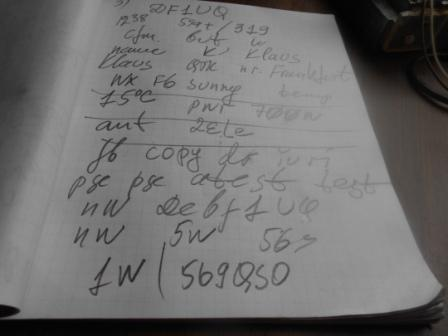 3) DF1UQ
1238 599+/319
cfm but w
name K Klaus
Klaus QTH nr. Frankfurt
WX FB sunny temp
15°C pwr 700W
ant 2ELE
fb copy dr iuri
pse pse atest test
nw de bf1UQ
nw 5W 569
1W | 569 QSO